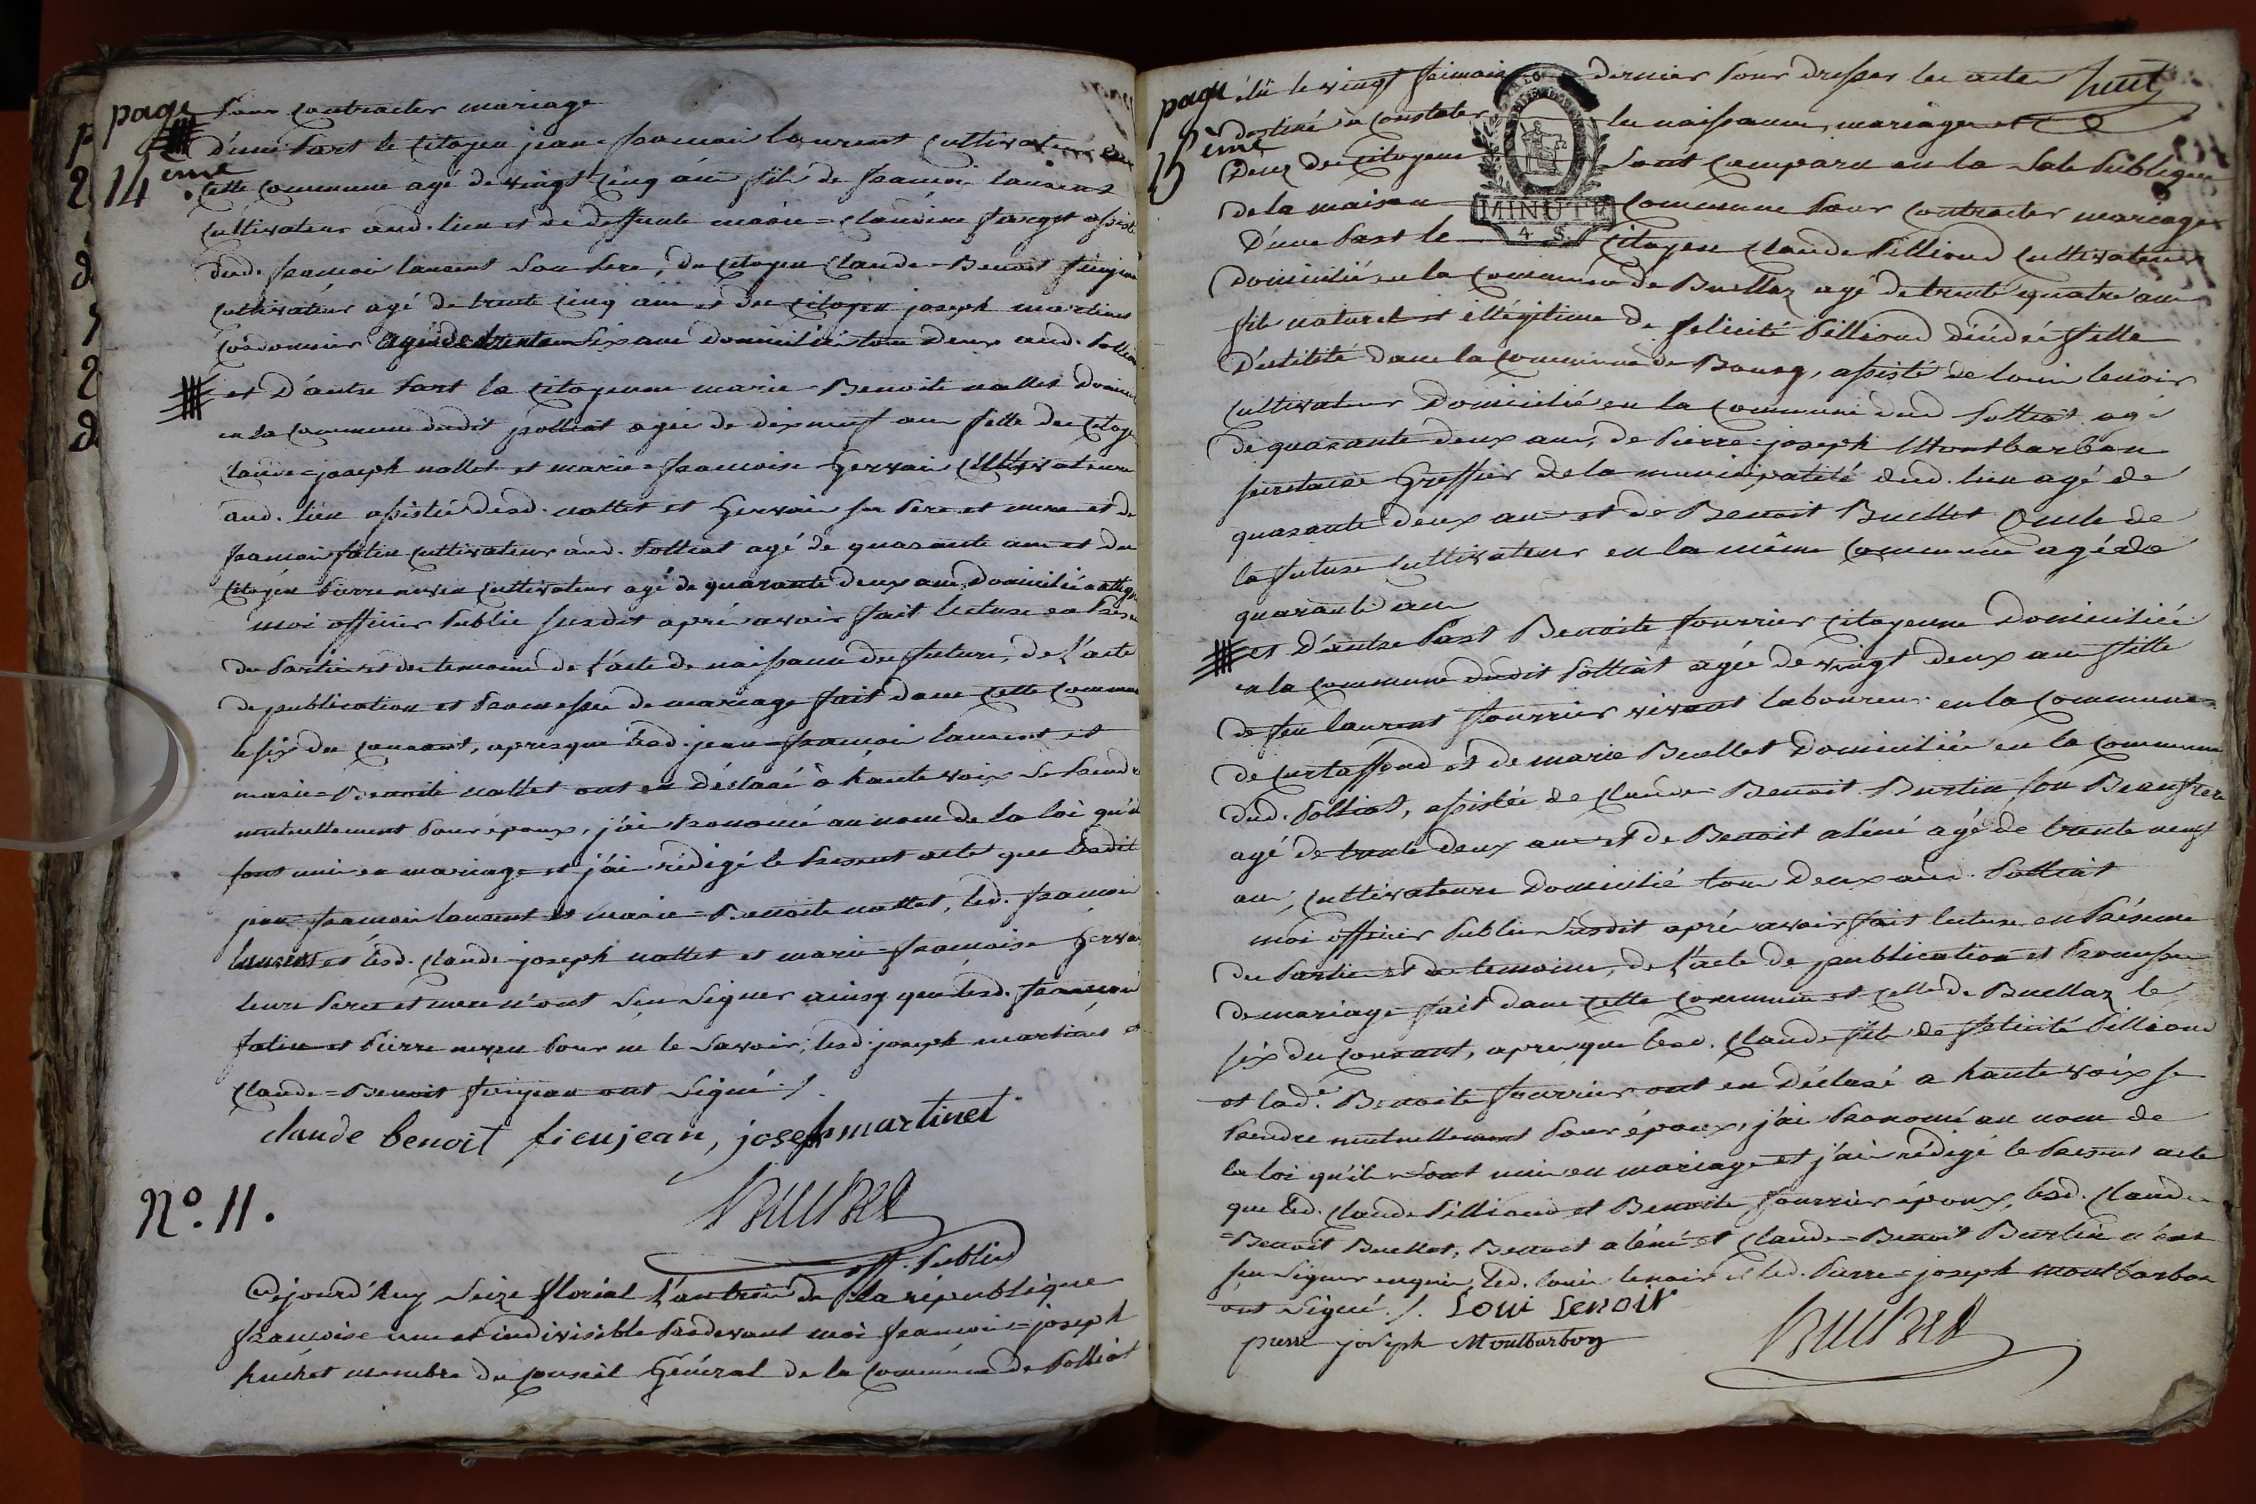 page
14
eme
pour contracter mariage
D'une part le Citoyen jean=francoi laurent cultivateur en
cette commune agé de vingt cinq ans fils de francoi laurent
cultivateur aud. lieu et de deffunte marie=claudine farget assisté
dud. francoi laurent son pere, du citoyen Claude=Benoit fieujean
cultivateur agé de trente cinq ans et du citoyen joseph martinet
cordonnier agé de trente six ans domiciliés tous deux aud. polliat
et D'autre part la citoyenne marie=Benoite nallet domiciliée
en la commune dudit polliat agée de dixneuf ans fille du citoyen
claude=joseph nallet et marie=francoise Gervais cultivateurs
aud. lieu assistée desd. nallet et Gervais ses pere et mere et de
francoi cultivateur aud. polliat agé de quarante ans et du
citoyen pierre cultivateur agé de quarante deux ans, domiciliés
moi officier public susdit aprés avoir fait lecture en
des parties et des temoins de l'acte de naissance des futurs, de l'acte
de publication et promesses de mariage fait dans cette commune
le six du courant, apres que lesd. jean=francoi laurent et
marie=Benoite nallet ont eu déclaré à haute voix se prendre
mutuellement pour époux, j'ai prononcé au nom de la loi qu'ils
sont unis en mariage et j'ai rédigé le present acte que lesdits
jean=francoi laurent et marie=Benoite nallet, led. francoi
laurent et lesd. claude joseph nallet et marie=francoise Gervais
leurs peres et mere n'ont seu signer ainsy que lesd. francoi
et pierre pour ne le savoir; lesd. joseph martinet et
Claude=Benoit fieujean ont signé ./.
claude benoit fieujean, joseph martinet
huchet
off. public
N.° 11.
Cejourd'huy seize florial l'an trois de la république
francoise une et indivisible pardevant moi francoi=joseph
huchet membre du conseil Général de la commune de Polliat
page
15
eme
huit
élû le vingt frimaire dernier pour dresser les actes
destiné à constater les naissances, mariages et
Décez des Citoyens sont comparu en la sale publique
de la maison commune pour contracter mariage
MINUTE
4 S.
D'une part le citoyen Claude Pillioud cultivateur
domicilié en la commune de Buellaz agé de trente quatre ans
fils naturel et illégitime de felicité Pillioud décédée fille
D'utilité dans la commune de Bourg, assisté de louis lenoir
cultivateur domicilié en la commune dud polliat agé
de quarante deux ans, de Pierre=joseph Montbarbon
secretaire Greffier de la municipalité dud. lieu agé de
quarante deux ans et de Benoit Buellet oncle de
la future cultivateur en la même commune agé de
quarante ans
et D'autre part Benoite fourrier citoyenne domiciliée
en la commune dudit Polliat agée de vingt deux ans fille
de feu laurent fourrier vivant laboureur en la commune
de curtaffond et de marie Buellet domiciliée en la commune
dud. Polliat, assistée de Claude=Benoit Burtin son Beaufrere
agé de trente deux ans et de Benoit aléné agé de trente neuf
ans, cultivateurs domicilié tous deux aud. Polliat
moi officier Public susdit aprés avoir fait lecture en présence
des parties et des temoins, de l'acte de publication et promesses
de mariage fait dans cette commune et celle de Buellaz le
six du courant, apres que lesd. Claude fils de felicité Pillioud
et lad.e Benoite fourrier ont eu déclaré a haute voix se
prendre mutuellement pour époux, j'ai prononcé au nom de
la loi qu'ils sont unis en mariage et j'ai rédigé le present acte
que led. claude Pillioud et Benoite fourrier époux, lesd. Claude
=Benoit Buellet, Benoit aléné et Claude=Benoit Burtin n'ont
seu signer enquis, led. louis lenoir et led. Pierre=joseph montbarbon
ont signé ./. Loui Lenoir
pierre joseph Montbarbon
huchet